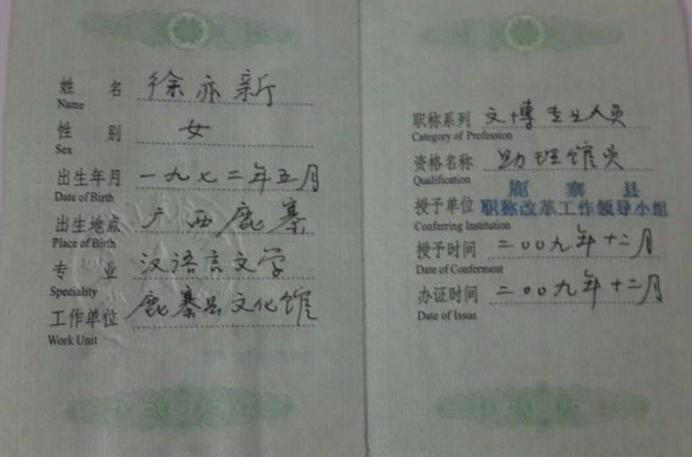 姓 名 徐亦新
Name
性 别 女
Sex
出生年月 一九七二年五月
Date of Birth
出生地点 广西鹿寨
Place of Birth
专 业 汉语言文学
Speciality
工作单位 鹿寨县文化馆
Work Unit
职称系列 文博专业人员
Category of Profession
资格名称 助理馆员
Qualification
鹿寨县
授予单位 职称改革工作领导小组
Conferring Institution
授予时间 二〇〇九年十二月
Date of Conferment
办证时间 二〇〇九年十二月
Date of Issue